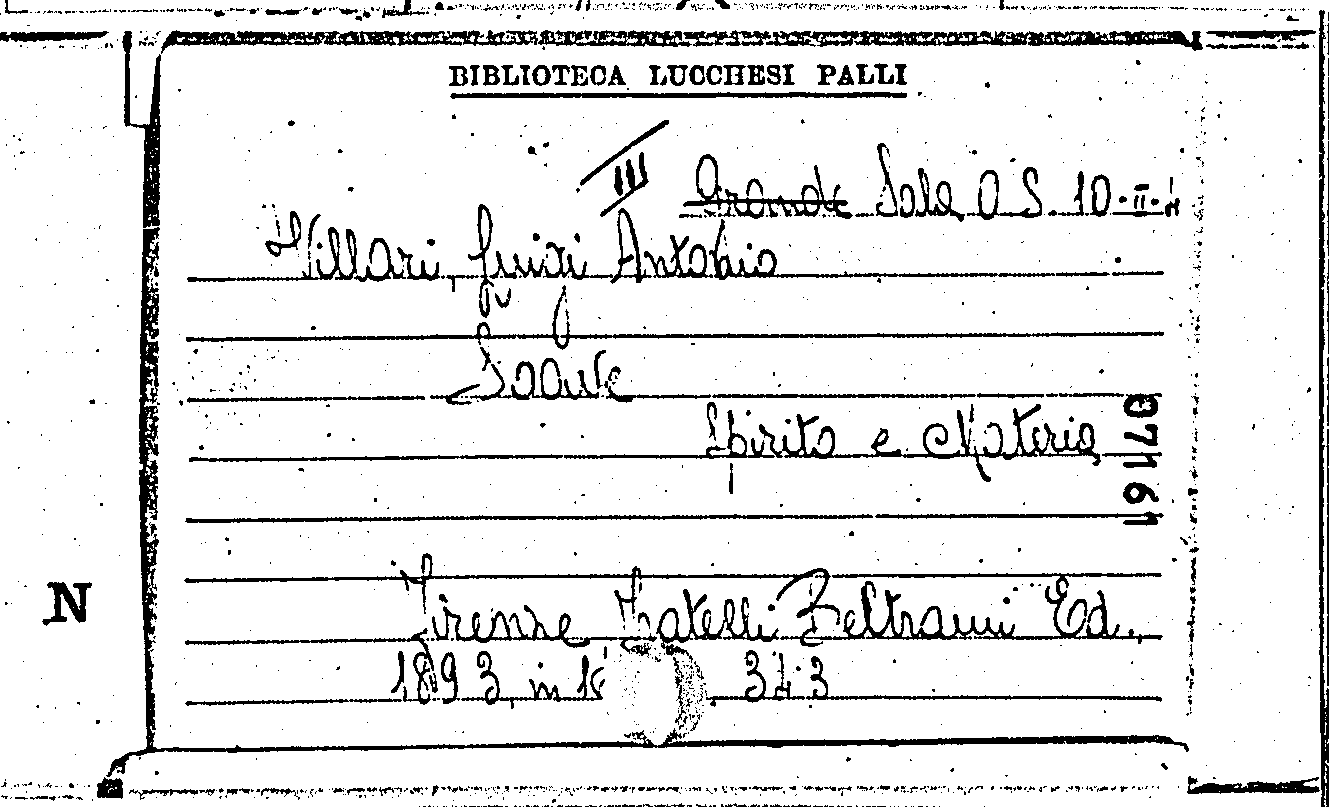 BIBLIOTECA LUCCHESI PALLI
III Grande Sala O S. 10-II-
Villari, Luigi Antonio
Spirito e Materia
07161
Firenze Fratelli Beltrami Ed.,
1893, in 16 343
N